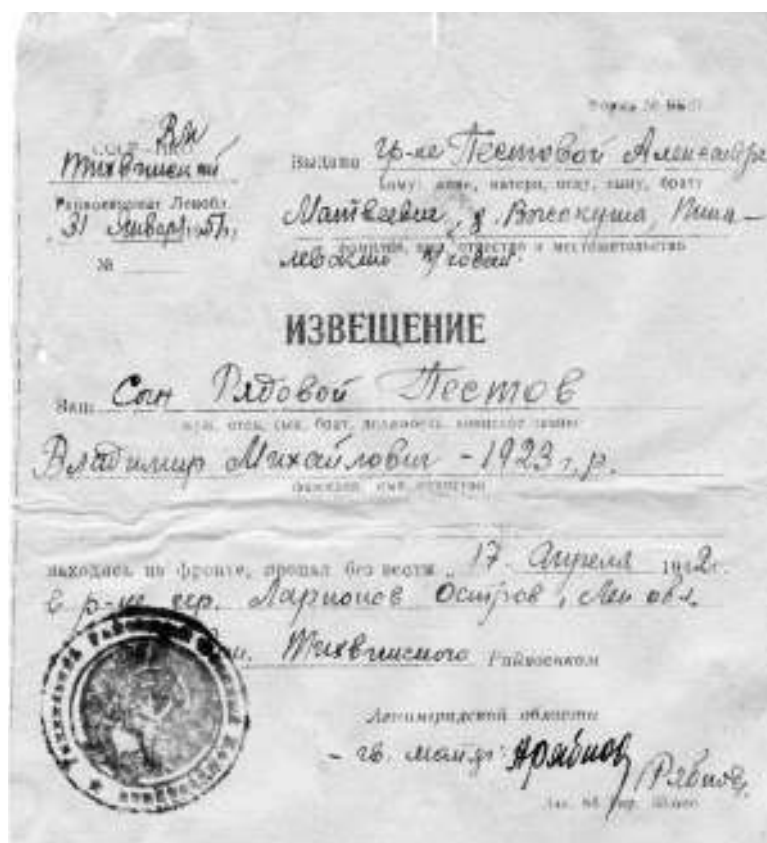 Форма №
С.С.С.Р.
РВК
Тихвинский
Райвоенкомат Ленобл.
„31 Января 1951г.
№
Выдано гр-ке Пестовой Александре
кому: жене, матери, отцу, сыну, брату
Матвеевне, д. Высокуша,
фамилия, имя, отчество и местожительство
ИЗВЕЩЕНИЕ
Ваш Сын Рядовой Пестов
муж, отец, сын, брат, должность, воинское звание
Владимир Михайлович - 1923 г.р.
фамилия, имя, отчество
находясь на фронте, пропал без вести „17 Апреля 1942г.
в р-не Ларионов Остров, Лен обл.
Тихвинского Райвоенком
Ленинградской области
- гв. майор: Арябнов Рябнов